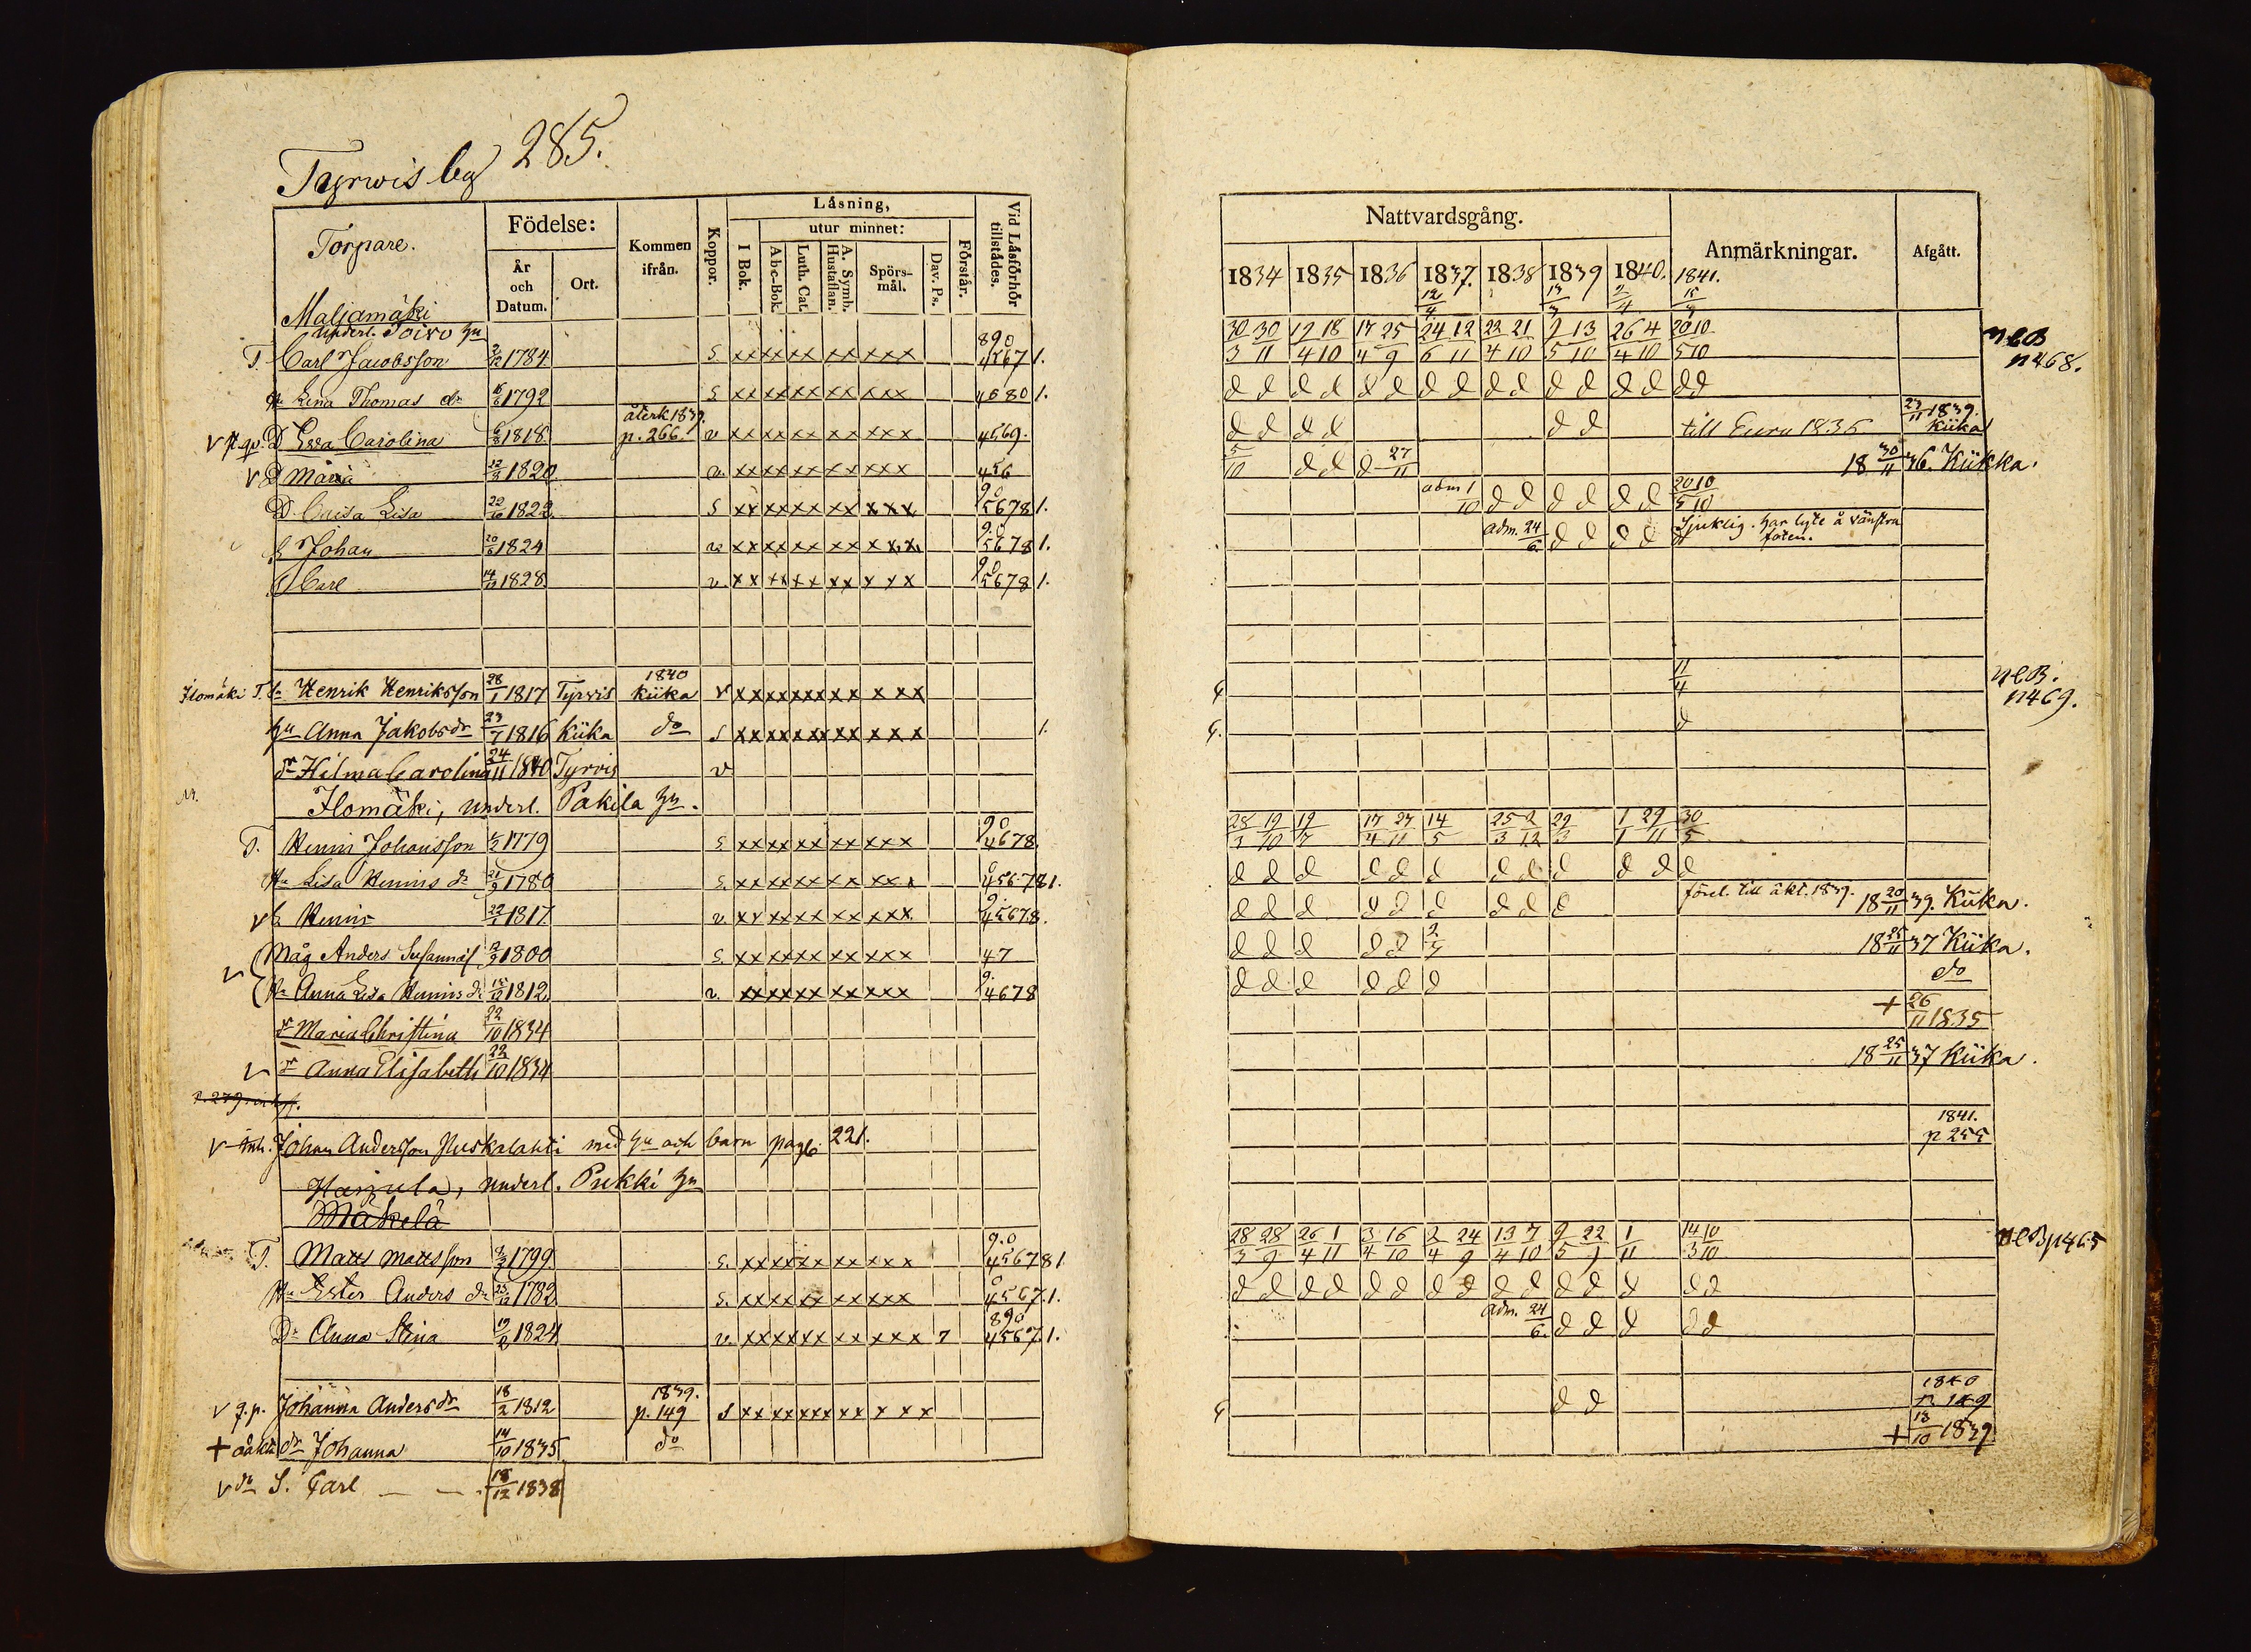 Tyrwis by 285.
Torpare.
Födelse:
År och Datum.
Ort.
Kommen ifrån.
Koppor.
Läsning,
I Bok.
utur minnet:
Abc-Bok.
Luth. Cat.
A. Symb. Hustaflan.
Spörs-mål.
Dav. Ps.
Förstår.
Vid Läsförhör tillstädes.
Maljamäki
underl. Toivo hn
T. Carl Jacobsson 1784 s xx xx xx xx xxx 890 4567 1.
Hu Lena Thomas dr 16/6 1792 s xx xx xx xx xxx 4680 1.
D Ewa Carolina 1818 återk 1839. p. 266. v xx xx xx xx xxx 4569.
v D Maria 12/3 1820 v. xx xx xx xx xxx 456
D. Caisa Lisa 1822 s xx xx xx xx xxx 90 5678 1.
Johan 20/6 1824 v xx xx xx xx xxx 90 5678 1.
Carl 1828 v. xx xx xx xx xxx 90 5678 1.
Ilomäki T. Henrik Henriksson 28/1 1817 Tyrvis 1840 Kiika v xx xx xx xx xxx
hu Anna Jakobsdr 23/7 1816 Kiika do s xx xx xx xx xxx 1.
dr Hilma Carolina 24/11 1840 Tyrvis v
Ilomäki, underl. Pakila hn.
T. Henric Johansson 1779 s xx xx xx xx xxx 90 4678.
Hu Lisa Henrics dr 21/9 1780 s. xx xx xx xx xxx 0 45678 1.
v Henric 1817 v. xx xx xx xx xxx 9. 45678.
Måg Anders 1800 s. xx xx xx xx xxx 47
v Hu Anna Lisa Henrics dr 1812 v. xx xx xx xx xxx 9. 4678
dr Maria Christina 22/10 1834
v dr Anna Elisabeth 22/10 1834
v Inh. Johan Andersson Ruskalahti med hu och barn page 221.
Harjula, underl. Pukki hn
Mäkelä
T. Matts Mattsson 1799 s. xx xx xx xx xxx 9.0 45678 1
Hu Ester Anders dr 1782 s. xx xx xx xx xxx 0 4567. 1.
Dr Anna Stina 1824 v. xx xx xx xx xxx 7 890 4567. 1.
v q.p. Johanna Anders dr 18/2 1812 1839. p. 149 s xx xx xx xx xxx
+ oäkta dr Johanna 14/10 1835 do
v dn S. Carl 18/12 1838
Nattvardsgång.
Anmärkningar.
Afgått.
1834 1835 1836 1837. 1838 1839 1840. 1841.
30/3 30/11 12/4 18/10 17/4 25/9 24/6 12/11 22/4 21/10 9/5 13/10 26/4 4/10 20/5 10/10
n C B p 468.
d d d d d d d d d d d d d d d d
d d d d d d till Eura 1836 23/11 1839. Kiika
5/10 d d d 27/11 18 30/11 36. Kiikka.
adm 1/10 d d d d d d 20/5 10/10
adm. 24/6. d d d d Sjuklig. har lyte å vänstra foten.
11/4
n C B. p 469.
d
28/3 19/10 19/7 17/4 27/11 14/5 25/3 2/12 29/3 1/1 29/11 30/5
d d d d d d d d d d d d
d d d d d d d d d förel. till äkt. 1839. 18 20/11 39. Kiika.
d d d d d 18 25/11 37 Kiika.
d d d d d d do
+ 26/11 1835
18 25/11 37 Kiika.
1841. p 255
28/3 28/9 26/4 1/11 3/4 16/10 2/4 24/9 13/4 7/10 9/5 22/9 1/11 14/3 10/10
n C B p 465
d d d d d d d d d d d d d d d
adm. 24/6. d d d d d
d d 1840 p. 149
+ 13/10 1839